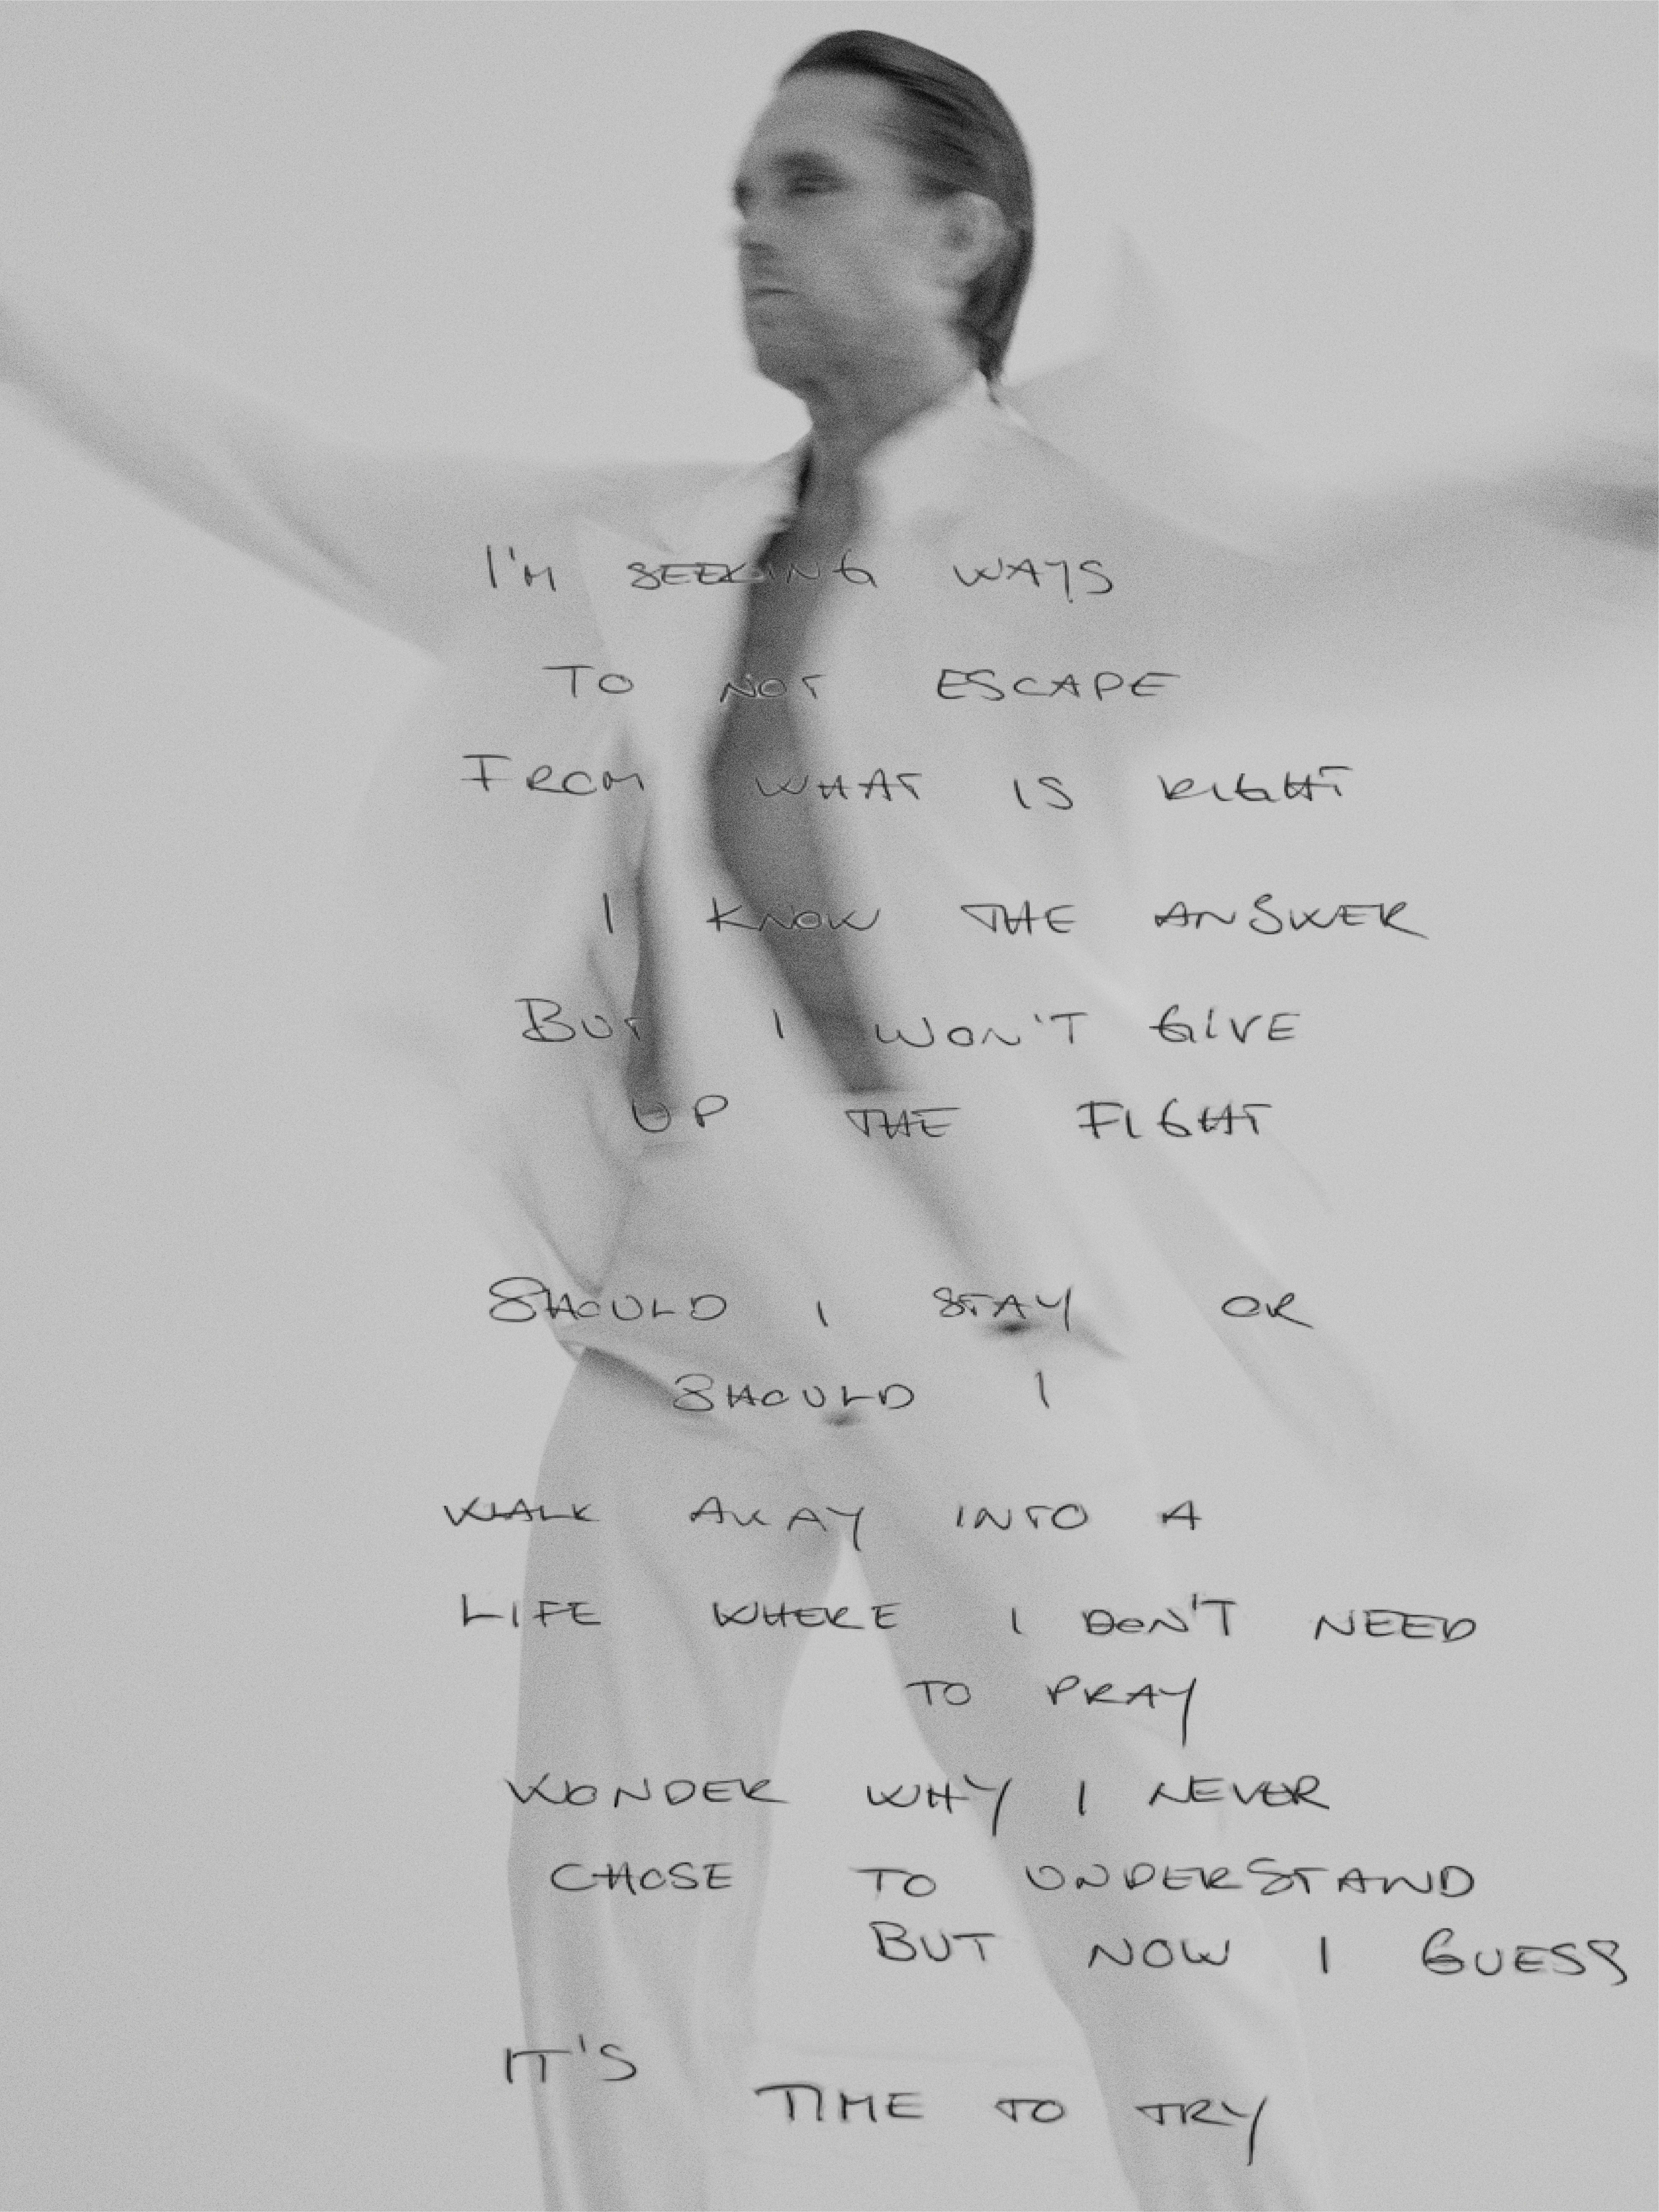 I'M SEEKING WAYS
TO NOT ESCAPE
FROM WHAT IS RIGHT
I KNOW THE ANSWER
BUT I WON'T GIVE
UP THE FIGHT
SHOULD I STAY OR
SHOULD I
WALK AWAY INTO A
LIFE WHERE I DON'T NEED
TO PRAY
WONDER WHY I NEVER
CHOSE TO UNDERSTAND
BUT NOW I GUESS
IT'S
TIME TO TRY